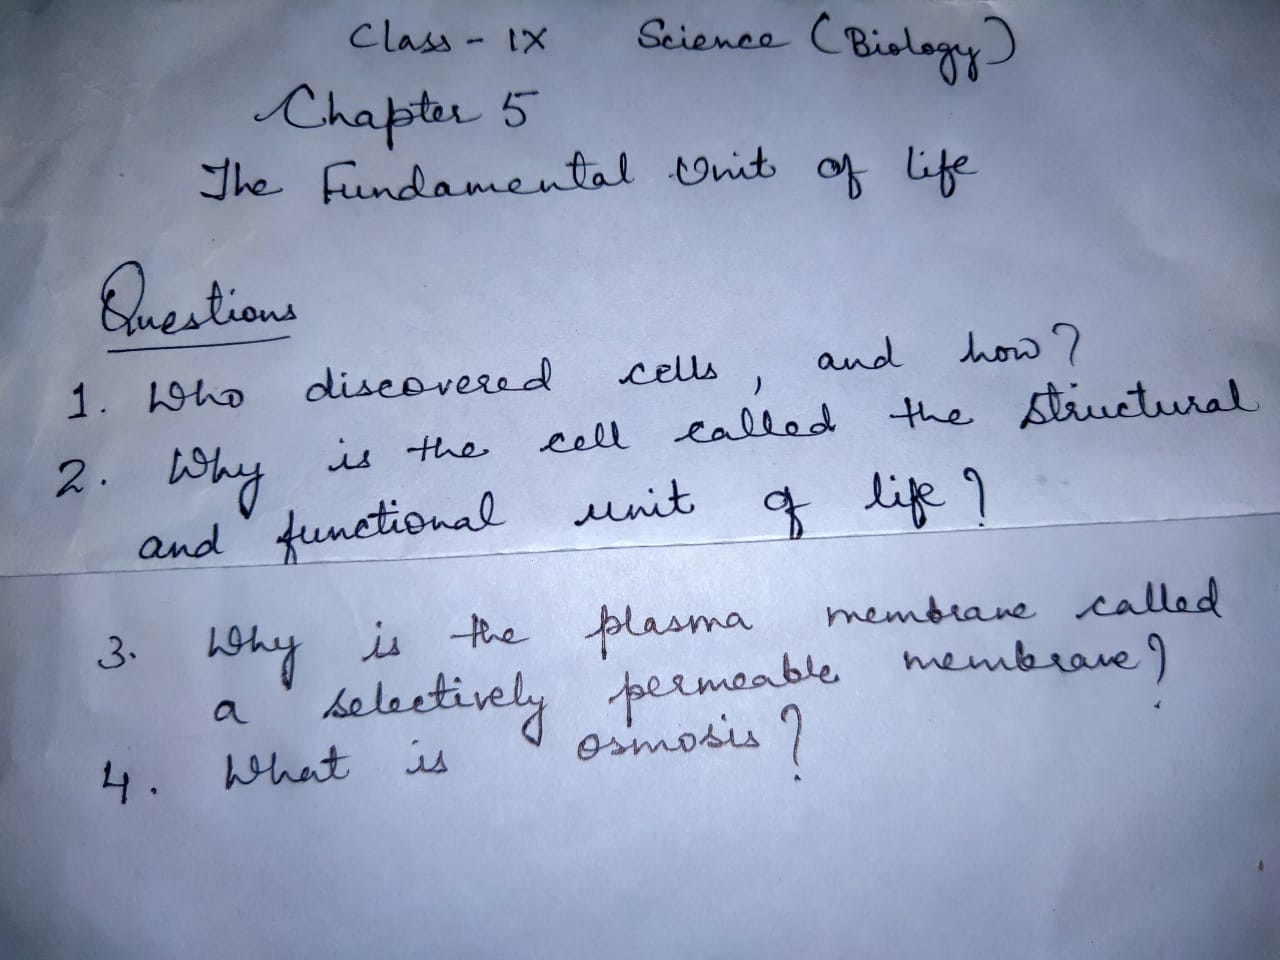 Class - IX Science (Biology)
Chapter 5
The Fundamental Unit of life
Questions
1. Who discovered cells, and how?
2. Why is the cell called the structural
and functional unit of life?
3. Why is the plasma membrane called
a selectively permeable membrane?
4. What is osmosis?